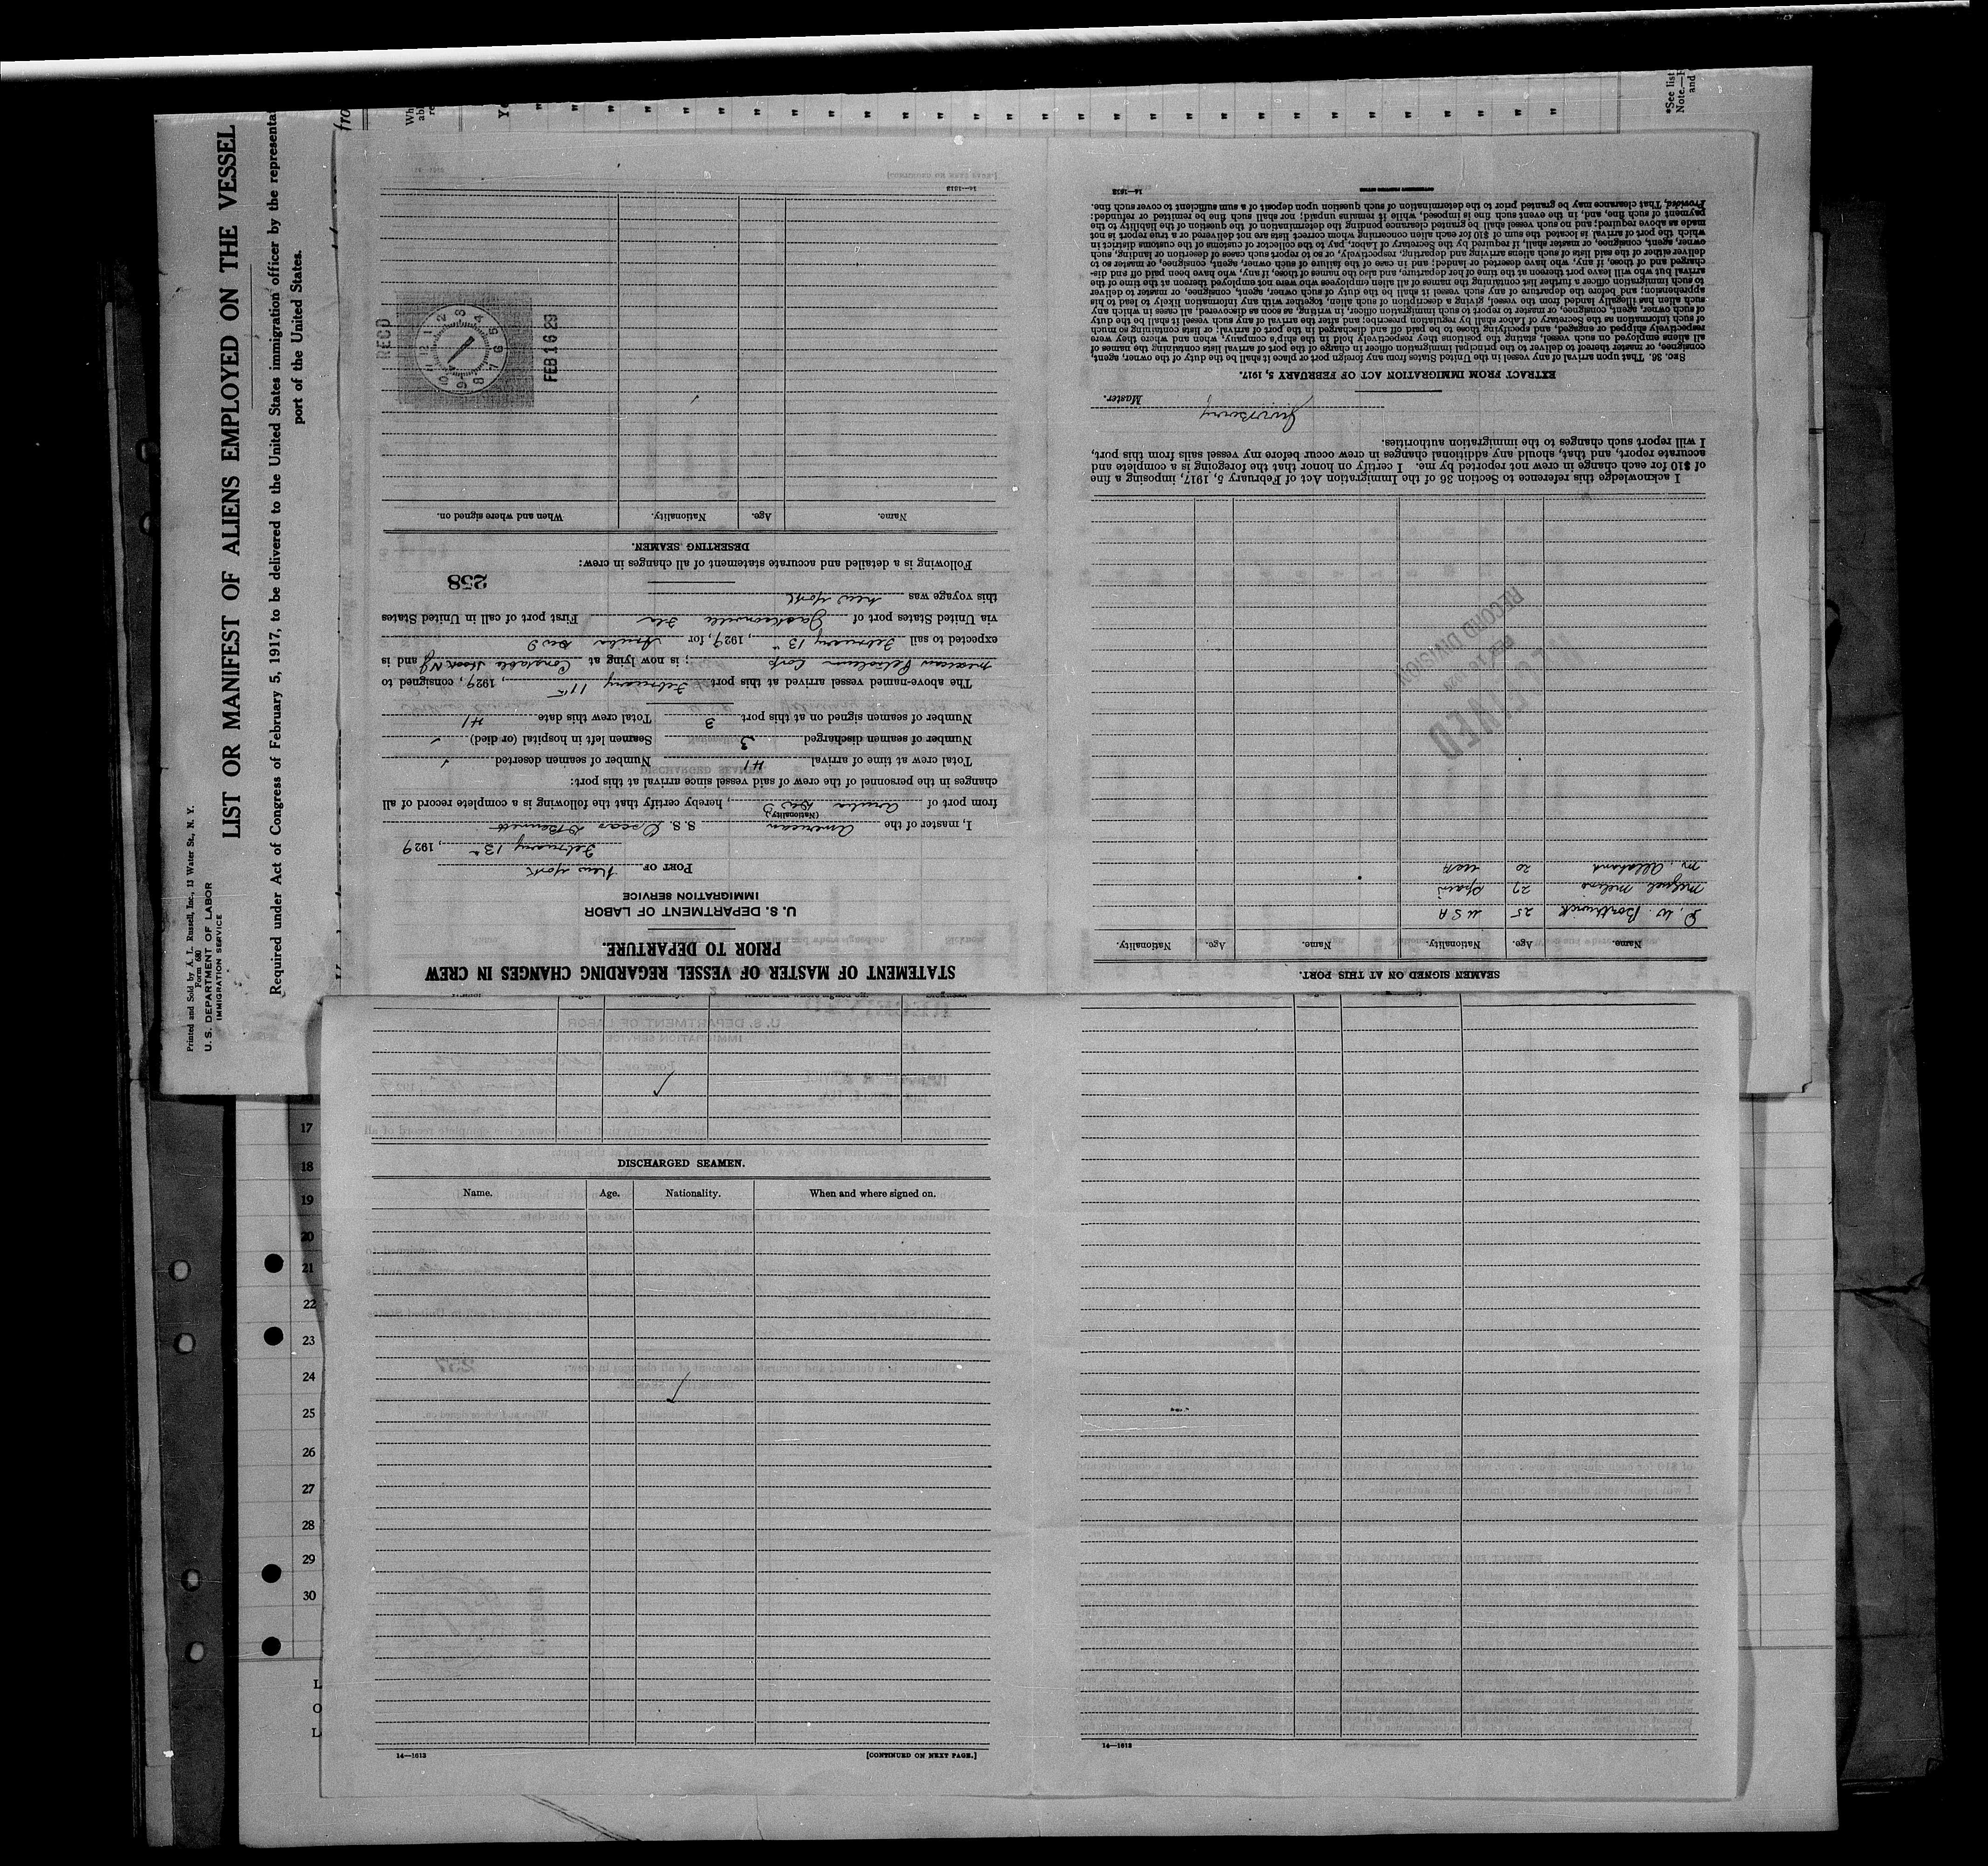 Printed and Sold by A. L. Russell, Inc., 13 Water St., N. Y.
Form 680
U. S. DEPARTMENT OF LABOR
IMMIGRATION SERVICE
LIST OR MANIFEST OF ALIENS EMPLOYED ON THE VESSEL
Required under Act of Congress of February 5, 1917, to be delivered to the United States immigration officer by the representa
port of the United States.
*See list
Note.—
and
STATEMENT OF MASTER OF VESSEL REGARDING CHANGES IN CREW
PRIOR TO DEPARTURE.
U. S. DEPARTMENT OF LABOR
IMMIGRATION SERVICE
PORT OF New York
February 13, 1929
I, master of the American S. S. Oscar D Bennett
(Nationality.)
from port of Aruba DWI, hereby certify that the following is a complete record of all
changes in the personnel of the crew of said vessel since arrival at this port:
Total crew at time of arrival 41 Number of seamen deserted
Number of seamen discharged 3 Seamen left in hospital (or died)
Number of seamen signed on at this port 3 Total crew this date 41
The above-named vessel arrived at this port February 11th, 1929, consigned to
Mexican Petroleum Corp; is now lying at Constable Hook NJ and is
expected to sail February 13th, 1929, for Aruba DWI
via United States port of Jacksonville Fla First port of call in United States
this voyage was New York
258
Following is a detailed and accurate statement of all changes in crew:
DESERTING SEAMEN.
Name. Age. Nationality. When and where signed on.
REC'D
FEB 16 29
14—1613
[CONTINUED ON NEXT PAGE.]
SEAMEN SIGNED ON AT THIS PORT.
Name. Age. Nationality. Name. Age. Nationality.
W. Borthwick 25 USA
Miguel Molino 27 Spain
M. 20 USA
RECEIVED
FEB 16 1929
RECORD DIVISION
I acknowledge this reference to Section 36 of the Immigration Act of February 5, 1917, imposing a fine
of $10 for each change in crew not reported by me. I certify on honor that the foregoing is a complete and
accurate report, and that, should any additional changes in crew occur before my vessel sails from this port,
I will report such changes to the immigration authorities.
Master.
EXTRACT FROM IMMIGRATION ACT OF FEBRUARY 5, 1917.
SEC. 36. That upon arrival of any vessel in the United States from any foreign port or place it shall be the duty of the owner, agent,
consignee, or master thereof to deliver to the principal immigration officer in charge of the port of arrival lists containing the names of
all aliens employed on such vessel, stating the positions they respectively hold in the ship's company, when and where they were
respectively shipped or engaged, and specifying those to be paid off and discharged in the port of arrival; or lists containing so much
of such information as the Secretary of Labor shall by regulation prescribe; and after the arrival of any such vessel it shall be the duty
of such owner, agent, consignee, or master to report to such immigration officer, in writing, as soon as discovered, all cases in which any
such alien has illegally landed from the vessel, giving a description of such alien, together with any information likely to lead to his
apprehension; and before the departure of any such vessel it shall be the duty of such owner, agent, consignee, or master to deliver
to such immigration officer a further list containing the names of all alien employees who were not employed thereon at the time of the
arrival but who will leave port thereon at the time of her departure, and also the names of those, if any, who have been paid off and dis-
charged and of those, if any, who have deserted or landed; and in case of the failure of such owner, agent, consignee, or master so to
deliver either of the said lists of such aliens arriving and departing, respectively, or so to report such cases of desertion or landing, such
owner, agent, consignee, or master shall, if required by the Secretary of Labor, pay to the collector of customs of the customs district in
which the port of arrival is located the sum of $10 for each alien concerning whom correct lists are not delivered or a true report is not
made as above required; and no such vessel shall be granted clearance pending the determination of the question of the liability to the
payment of such fine, and, in the event such fine is imposed, while it remains unpaid; nor shall such fine be remitted or refunded:
Provided, That clearance may be granted prior to the determination of such question upon deposit of a sum sufficient to cover such fine.
14—1613
GOVERNMENT PRINTING OFFICE
DISCHARGED SEAMEN.
Name. Age. Nationality. When and where signed on.
14—1613
[CONTINUED ON NEXT PAGE.]
14—1613
17
18
19
20
21
22
23
24
25
26
27
28
29
30
L
O
L